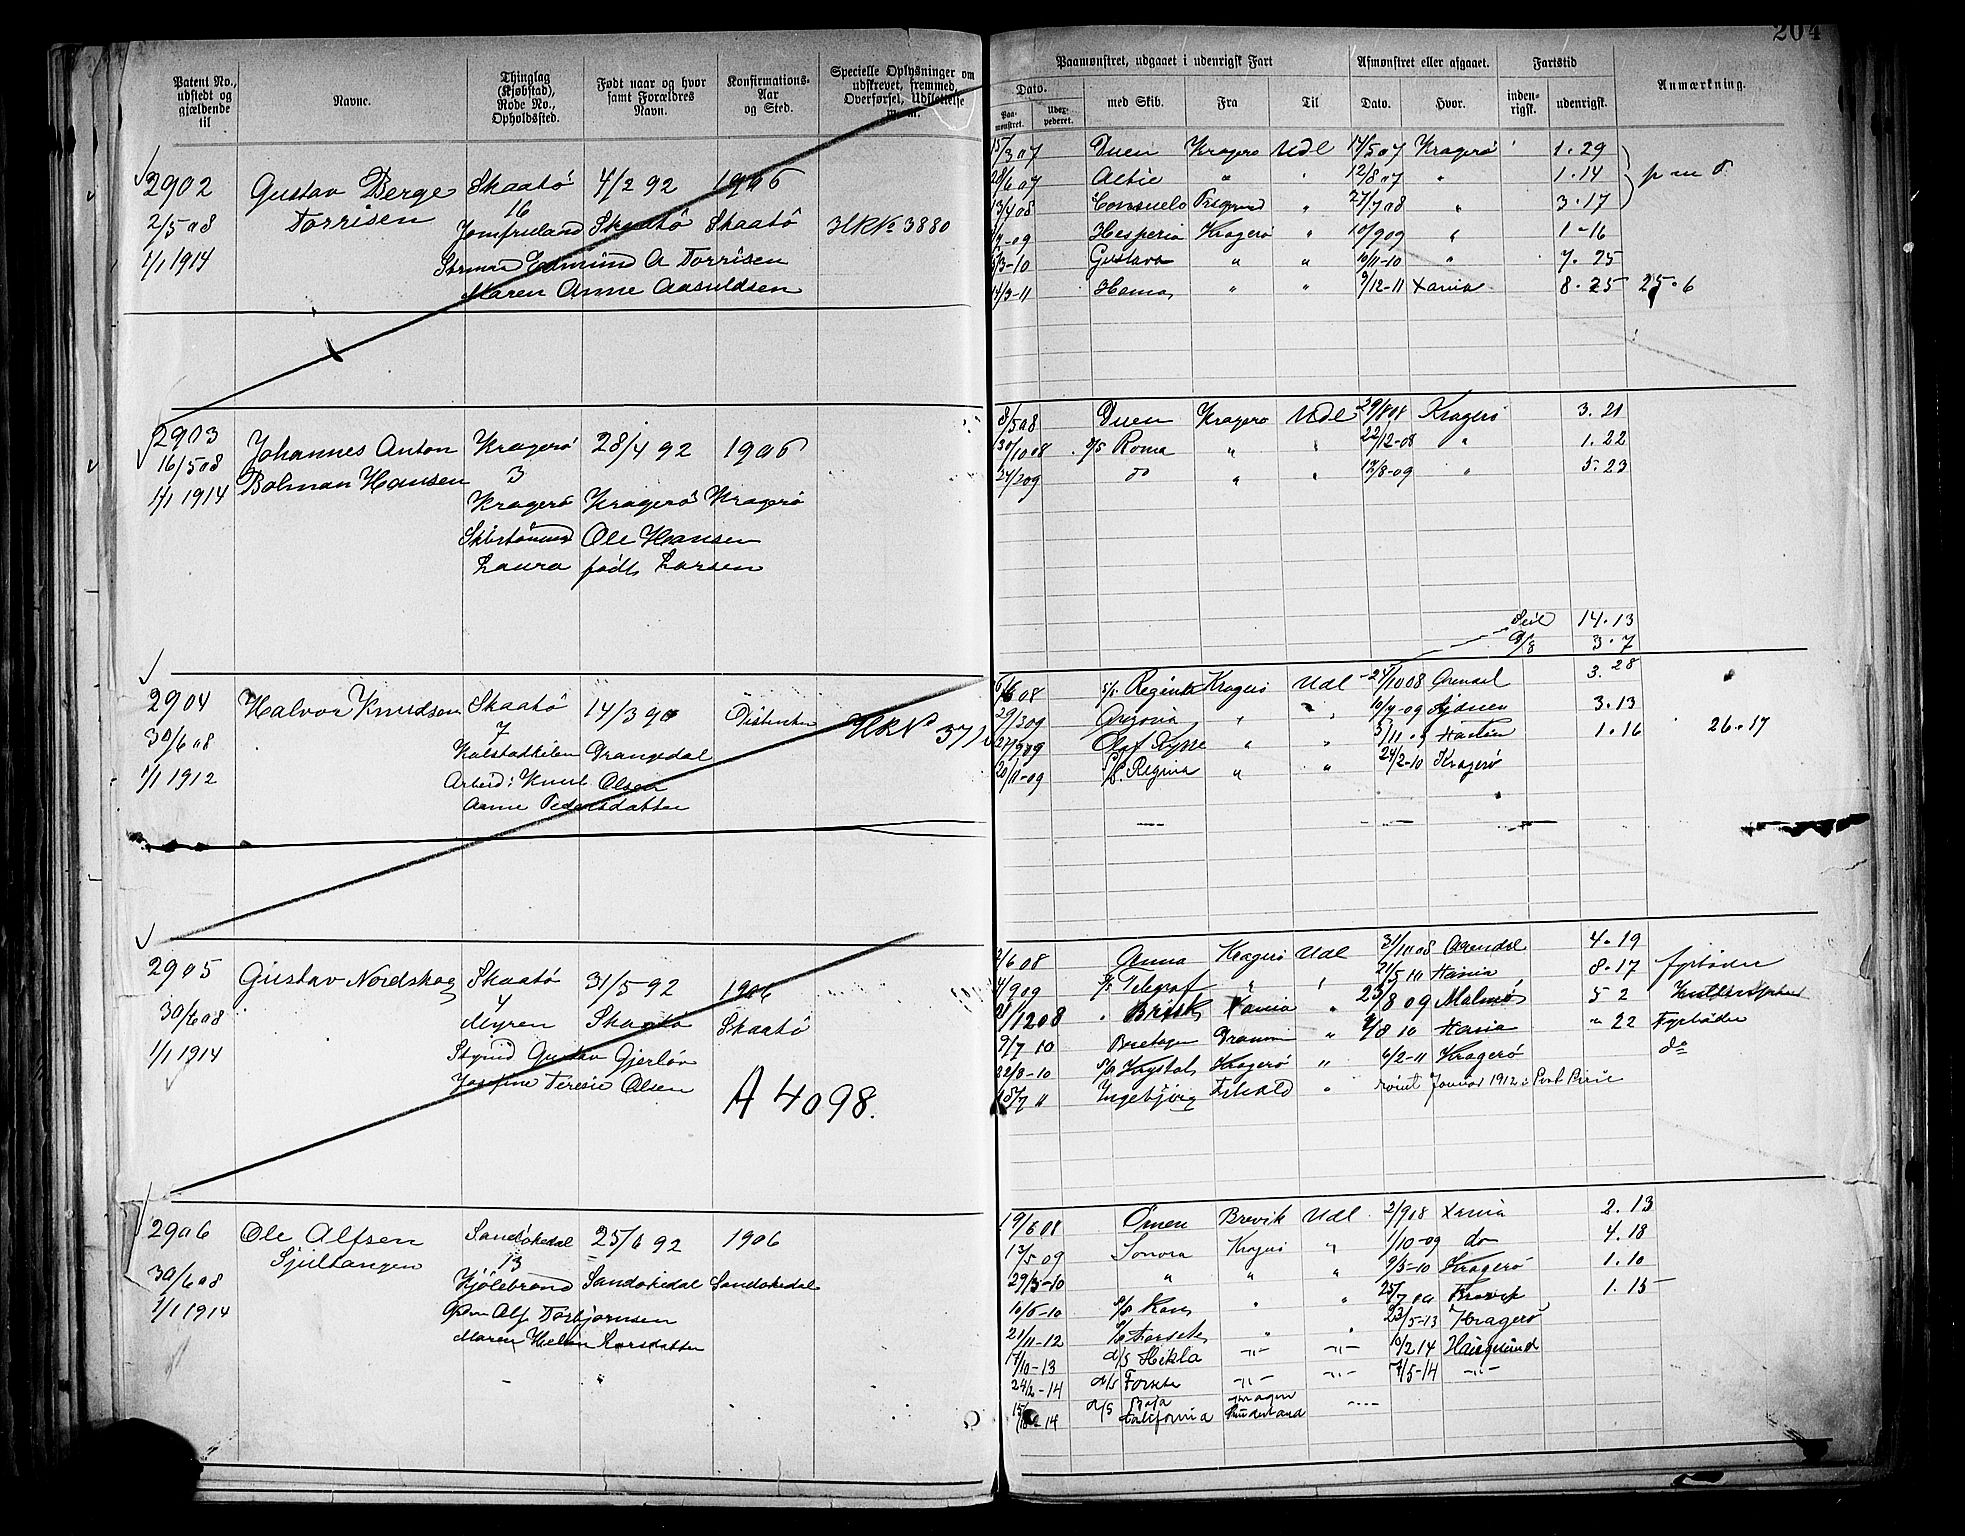 204
Patent No., udstedt og gjældende til
Navne.
Thinglag (Kjøbstad), Rode No., Opholdssted.
Født naar og hvor samt Forældres Navn.
Konfirmations-Aar og Sted.
Specielle Oplysninger om udskrevet, fremmed, Overførsel, Udslettelse m. m.
Paamønstret, udgaaet i udenrigsk Fart
Afmønstret eller afgaaet.
Fartstid
Anmærkning.
Dato.
med Skib.
Fra
Til
Dato.
Hvor.
inden-rigsk.
udenrigsk.
Paa-mønstret.
2902 Gustav Berge Skaatö 4/2 92 1906
Torrisen 16
2/5 08 Jomfruland Skaatö Skaatö HKNo 3880
1/1 1914 Edmund A Torrisen
Maren Anne Aasuldsen
15/3 07 Duen Kragerö Udl 14/5 07 Kragerö 1.29
28/6 07 Altie " " 12/8 07 " 1.14
13/4 08 Consuelo " 27/7 08 " 3.17
Hesperia Kragerö " 10/9 09 " 1-16
Gustava " " 10/11-10 " 7.25
14/3-11 Hama " " 9/12-11 Xania 8.25 25.6
2903 Johannes Anton Kragerö 28/4 92 1906
16/5 08 Bolman Hansen 3
1/1 1914 Kragerö Kragerö Kragerö
Ole Hansen
Laura födt Larsen
8/5 08 Duen Kragerö Udl 29/8 08 Kragerö 3.21
30/10 08 s/s Roma " " 22/12-08 " 1.22
24/2 09 do " " 17/8-09 " 5.23
Seil 14.13
D/S 3.7
2904 Halvor Knudsen Skaatö 14/3 90
7 HKNo 371
30/6 08 Kalstadkilen Drangedal
1/1 1912 Arbeid: Knut Olsen
Anne Pedersdatter
6/6 08 s/s Regina Kragerö Udl 24/10 08 Arendal 3.28
29/3 09 " " 10/7-09 3.13
27/9 09 Olaf Kyrre " " 3/11 09 1.16 26.17
20/11-09 s/s Regina " " 24/2-10 Kragerö
2905 Gustav Nordskog Skaatö 31/5 92 1906
4
30/6 08 Myren Skaatö Skaatö
1/1 1914 Gustav Gjerløv
Josefine Teresie Olsen
A 4098.
2/6 08 Anna Kragerö Udl 31/11 08 Arendal 4.19
4/9 09 Telegraf " " 21/5 10 Xania 8.17 fyrböder
1/12 08 " Brisk Xania " 23/8 09 Malmö 5 2
9/7 10 Bretagne Drammen " 9/8 10 Xania " 22 Fyrböder
22/8-10 s/s Krystal Kragerö " 6/2-11 Kragerö do
15/7 11 Ingebjörg " römt Januar 1912 i Port Pirie
2906 Ole Alfsen Sandökedal 25/6 92 1906
Sjultangen 13
30/6 08 Kjölebrönd Sandökedal Sandökedal
1/1 1914 Alf Torbjörnsen
Maren Helen Larsdatter
19/6 08 Örnen Brevik Udl 2/9 08 Xania 2.13
13/5 09 Sonora Kragerö " 1/10-09 do 4.18
29/3-10 " " " 9/5-10 Kragerö 1.10
10/6-10 s/s " " 25/7 Brevik 1.15
21/11-12 s/s Forsete " " 23/5-13 Kragerö
17/10-13 d/s Hekla -"- -"- 10/2 14 Haugesund
24/2-14 d/s Forsete -"- -"- 7/5-14 -"-
d/s Kragerö
California Sunderland